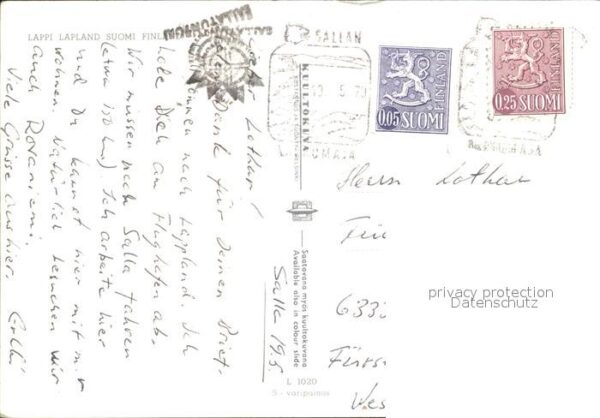 LAPPI LAPLAND SUOMI FINL
SALLATUNTURI
Lieber Lothar!
Vielen Dank für Deinen Brief.
nach Lappland. Ich
hole Dich am Flughafen ab.
Wir müssen nach Salla fahren
(etwa 150 km) Ich arbeite hier
und Du kannst hier mit mir
wohnen. Natürlich besuchen wir
auch Rovaniemi.
Viele Grüsse aus hier.
KUULTOKUVA
Saatavana myös kuultokuvana
Available also in colour slide
L 1020
S - varipainos
Salla 19.5
SALLAN
5 70
0.05 SUOMI
FINLAND
0.25 SUOMI
FINLAND
Herrn Lothar
633
privacy protection
Datenschutz
Wes